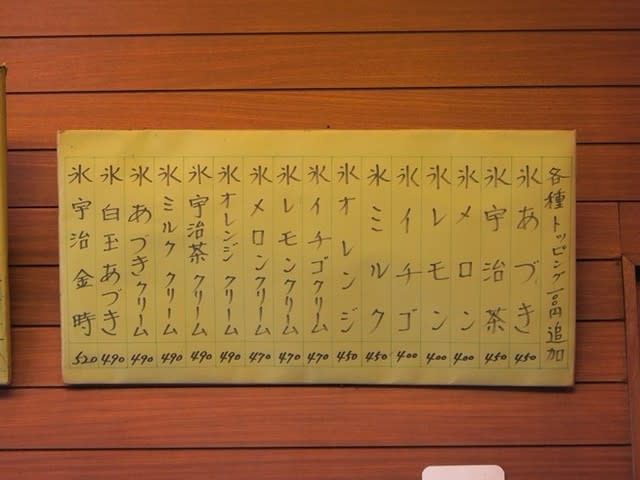 各種トッピング百円追加
氷あづき 450
氷宇治茶 450
氷メロン 400
氷レモン 400
氷イチゴ 400
氷ミルク 450
氷オレンジ 450
氷イチゴクリーム 470
氷レモンクリーム 470
氷メロンクリーム 470
氷オレンジクリーム 490
氷宇治茶クリーム 490
氷ミルククリーム 490
氷あづきクリーム 490
氷白玉あづき 490
氷宇治金時 520